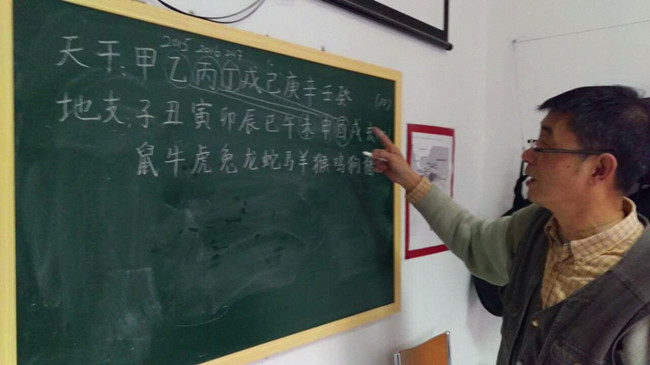 2015 2016 2017
天干:甲乙丙丁戊己庚辛壬癸
地支:子丑寅卯辰巳午未申酉戌亥
鼠牛虎兔龙蛇马羊猴鸡狗猪